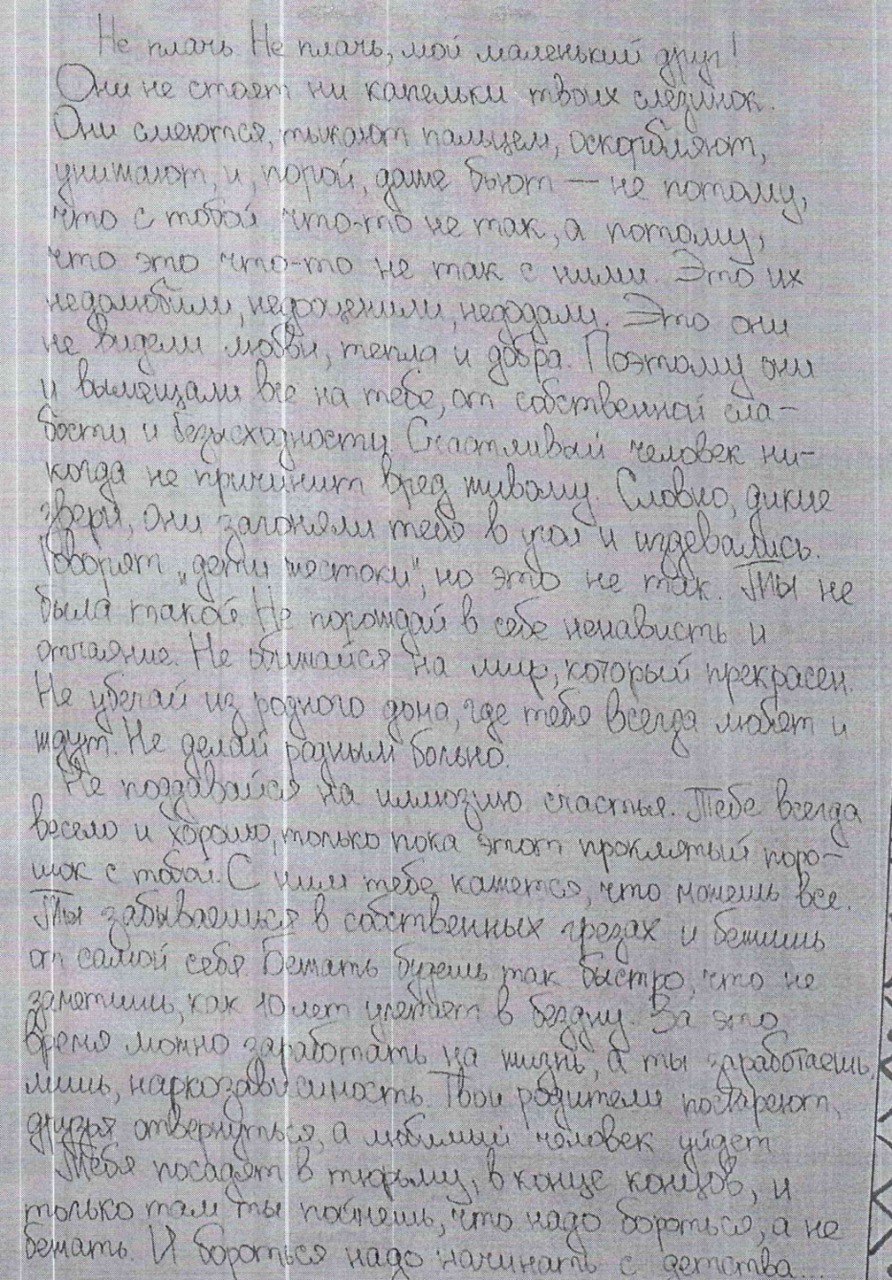 Не плачь. Не плачь, мой маленький друг!
Они не стоят ни капельки твоих слезинок.
Они смеются, тыкают пальцем, оскорбляют,
унижают, и, порой, даже бьют — не потому,
что с тобой что-то не так, а потому,
что это что-то не так с ними. Это их
недолюбили, недооценили, недодали. Это они
не видели любви, тепла и добра. Поэтому они
и вымещали все на тебе, от собственной сла-
бости и безысходности. Счастливый человек ни-
когда не причинит вред живому. Словно, дикие
звери, они загоняли тебя в угол и издевались.
Говорят „дети жестоки", но это не так. Ты не
была такой. Не порождай в себе ненависть и
отчаяние. Не обижайся на мир, который прекрасен.
Не убегай из родного дома, где тебя всегда любят и
ждут. Не делай родным больно.
Не поддавайся на иллюзию счастья. Тебе всегда
весело и хорошо, только пока этот проклятый поро-
шок с тобой. С ним тебе кажется, что можешь все.
Ты забываешься в собственных грезах и бежишь
от самой себя. Бежать будешь так быстро, что не
заметишь, как 10 лет улетает в бездну. За это
время можно заработать на жизнь, а ты заработаешь
лишь, наркозависимость. Твои родители постареют,
друзья отвернуться, а любимый человек уйдет.
Тебя посадят в тюрьму, в конце концов, и
только там ты поймешь, что надо бороться, а не
бежать. И бороться надо начинать с детства...